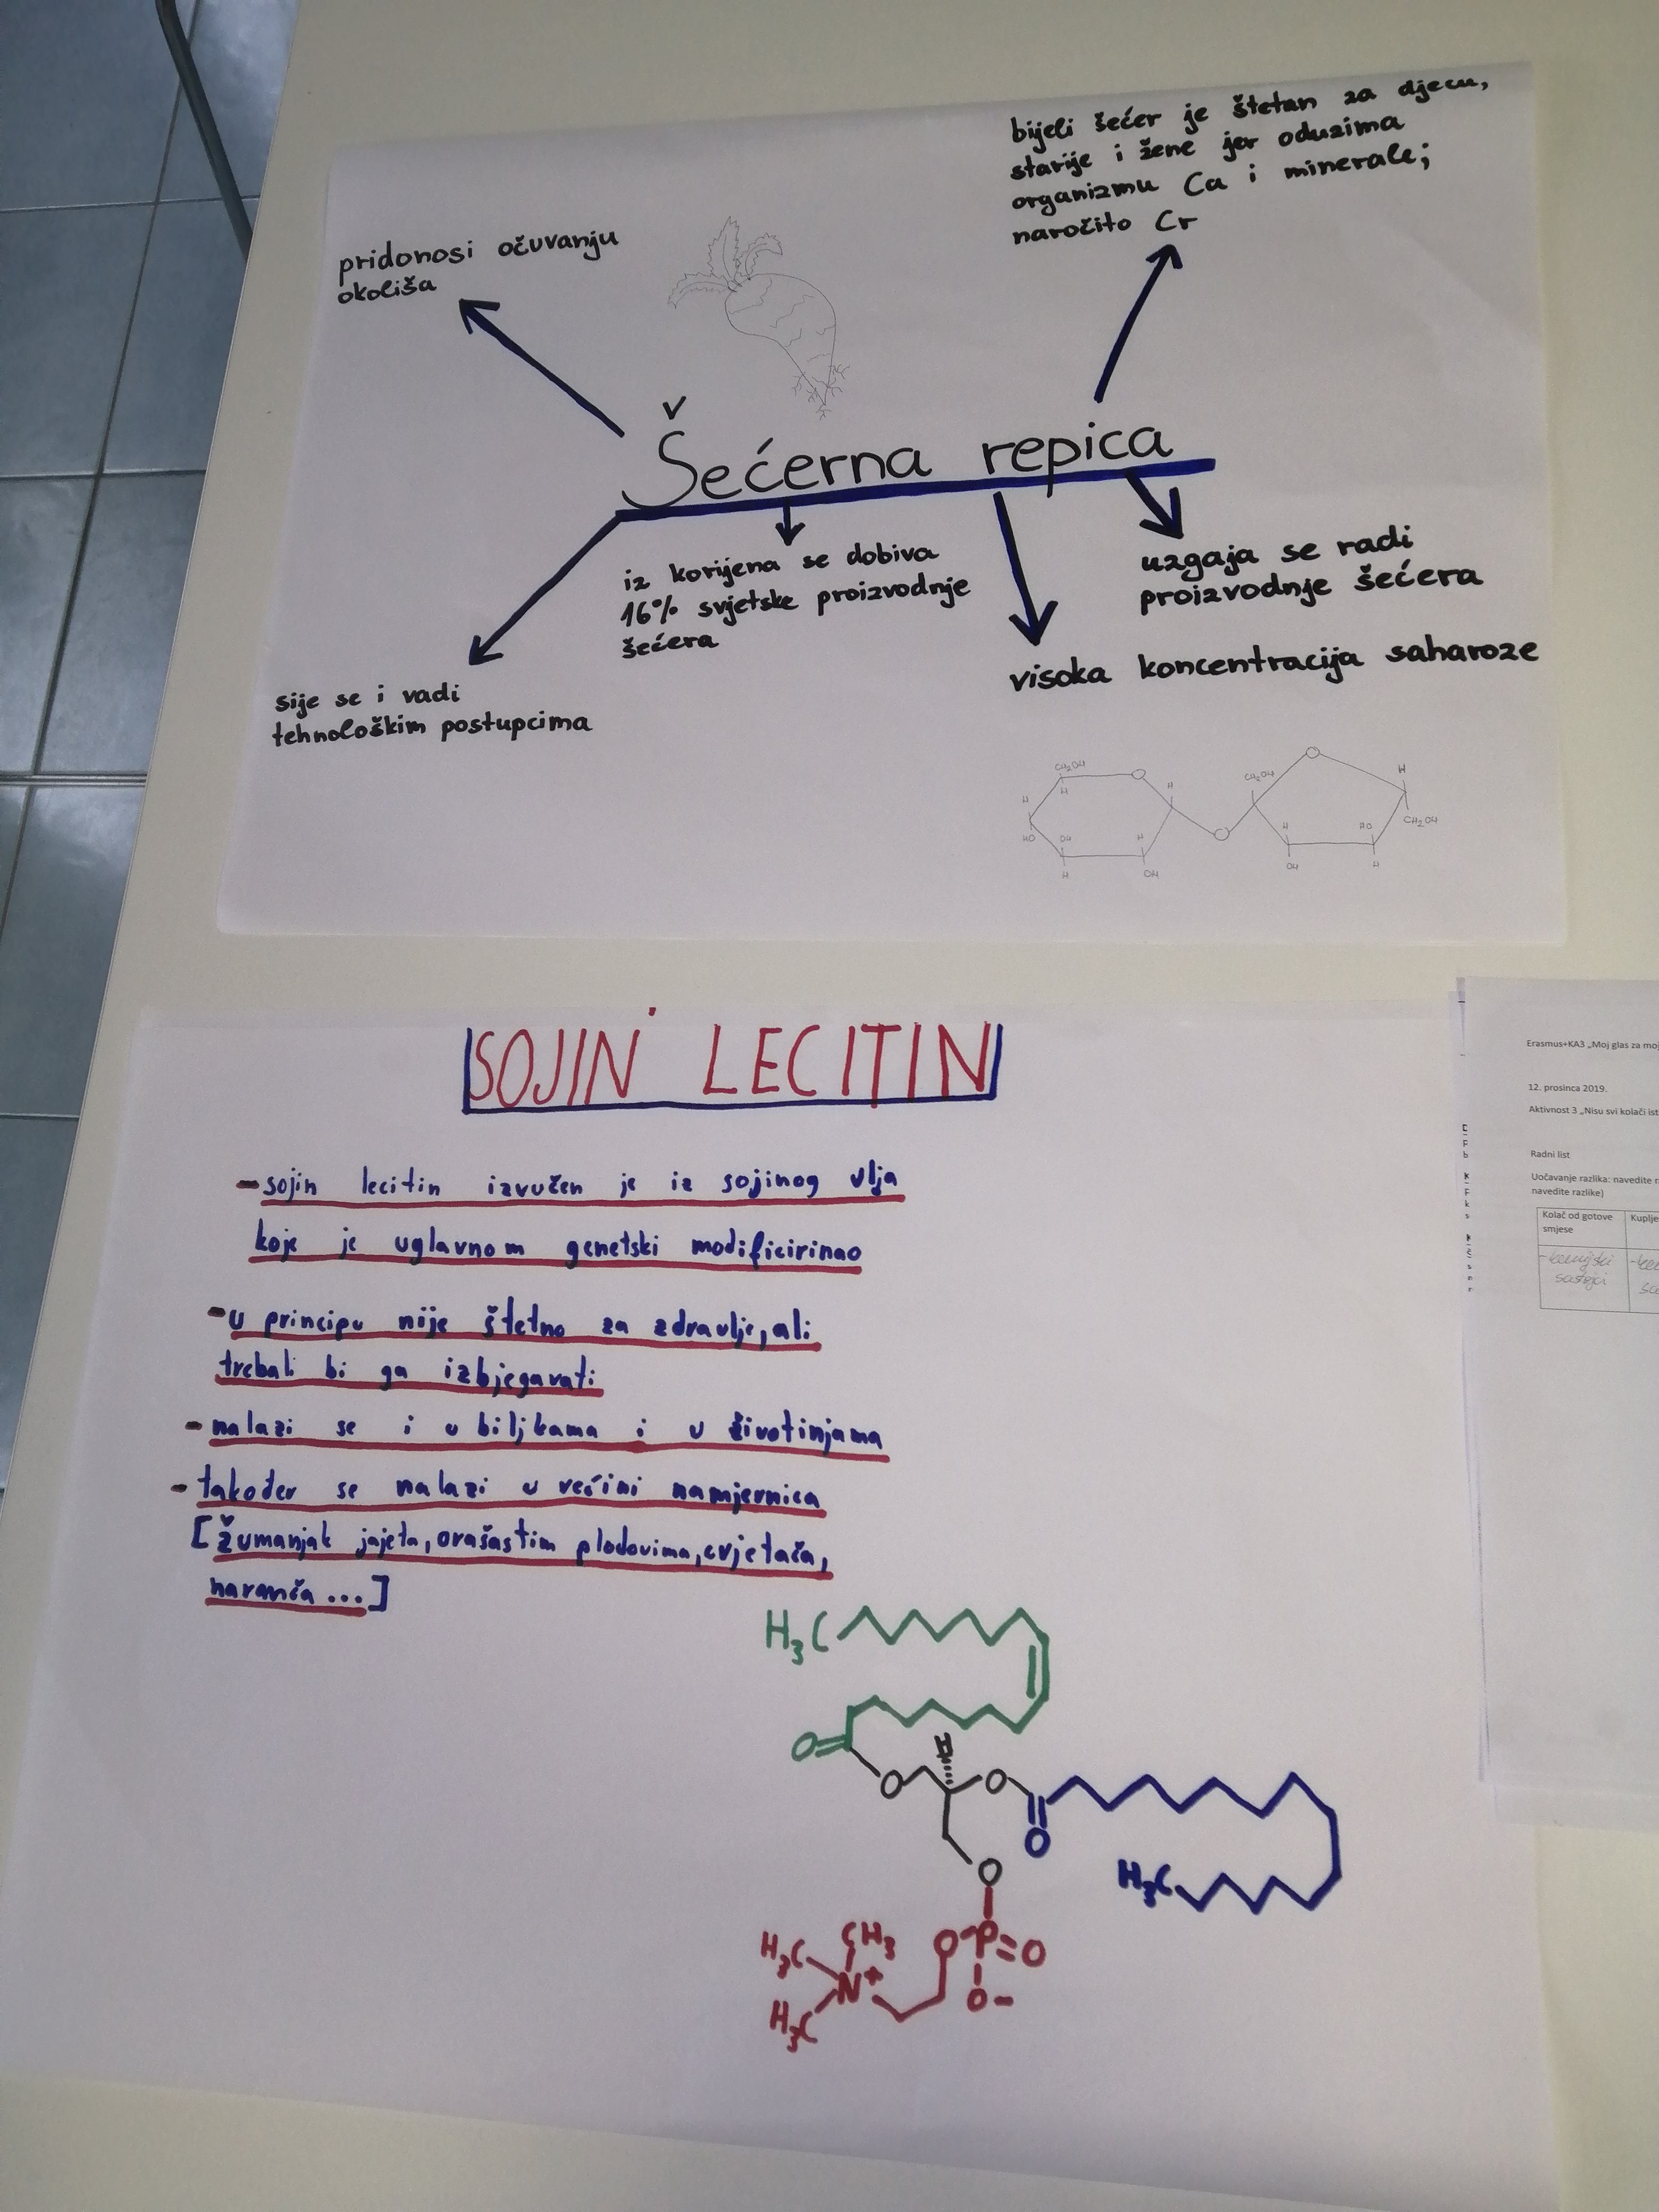 bijeli šećer je štetan za djecu,
starije i žene jer oduzima
organizmu Ca i minerale;
naročito Cr
pridonosi očuvanju
okoliša
Šećerna repica
iz korijena se dobiva
16% svjetske proizvodnje
šećera
uzgaja se radi
proizvodnje šećera
visoka koncentracija saharoze
sije se i vadi
tehnološkim postupcima
CH₂OH O H H H HO OH H H OH
O
CH₂OH O H CH₂OH H OH HO H
SOJIN LECITIN
- sojin lecitin izvučen je iz sojinog ulja
koje je uglavnom genetski modificirinao
- u principu nije štetno za zdravlje, ali
trebali bi ga izbjegavati
- nalazi se i u biljkama i u životinjama
- također se nalazi u većini namjernica
[žumanjak jajeta, orašastim plodovima, cvjetača,
naranča ...]
H₃C
O=
H
O O
O
H₃C
O
H₃C CH₃ O P = O
N⁺
H₃C O-
Erasmus+KA3 „Moj glas za
12. prosinca 2019.
Aktivnost 3 „Nisu svi kolači
Radni list
Uočavanje razlika: navedite
navedite razlike)
Kolač od gotove
smjese
- kemijski
sastojci